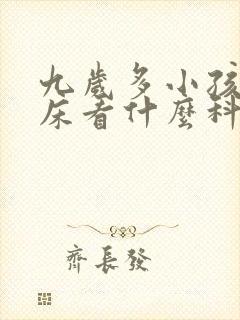 九歲多小孩
床看什麼科
齊長發